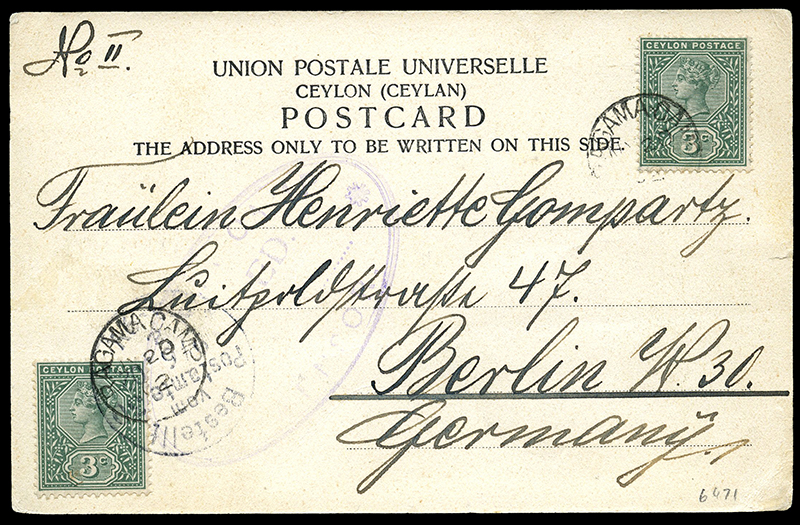 No II.
UNION POSTALE UNIVERSELLE
CEYLON (CEYLAN)
POSTCARD
THE ADDRESS ONLY TO BE WRITTEN ON THIS SIDE.
CEYLON POSTAGE
3c
RAGAMA CA
Fräulein Henriette Gompartz.
Luitpoldstraße 47.
Berlin W. 30.
Germany.
RAGAMA CAMP
20
Bestellt
vom
Postamte
CEYLON POSTAGE
3c
6471